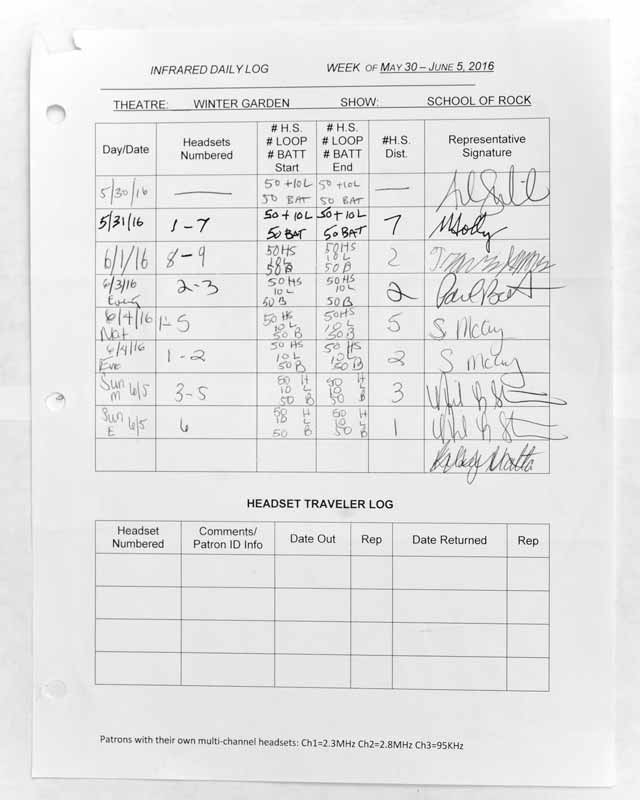 INFRARED DAILY LOG WEEK OF MAY 30 – JUNE 5, 2016
THEATRE: WINTER GARDEN SHOW: SCHOOL OF ROCK
Day/Date Headsets Numbered # H.S. # LOOP # BATT Start # H.S. # LOOP # BATT End #H.S. Dist. Representative Signature
5/30/16 — 50 +10L 50 BAT 50 +10L 50 BAT —
5/31/16 1-7 50 + 10L 50 BAT 50 + 10L 50 BAT 7
6/1/16 8-9 50HS 10L 50B 50HS 10L 50B 2
6/3/16 Eve 2-3 50HS 10L 50B 50HS 10L 50B 2
6/4/16 Mat 1-5 50HS 10L 50B 50HS 10L 50B 5 S McCoy
6/4/16 Eve 1-2 50HS 10L 50B 50HS 10L 50B 2 S McCoy
Sun M 6/5 3-5 50 H 10 L 50 B 50 H 10 L 50 B 3
Sun E 6/5 6 50 H 10 L 50 B 50 H 10 L 50 B 1
HEADSET TRAVELER LOG
Headset Numbered Comments/ Patron ID Info Date Out Rep Date Returned Rep
Patrons with their own multi-channel headsets: Ch1=2.3MHz Ch2=2.8MHz Ch3=95KHz